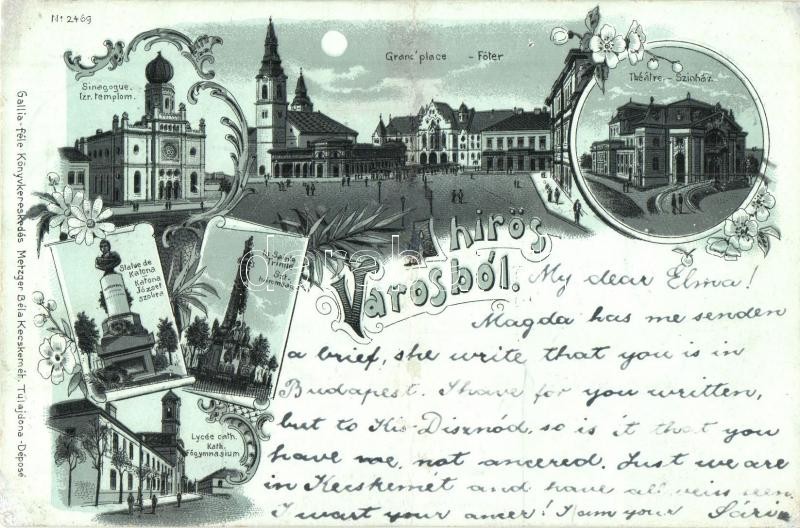 Nº 2469
Sinagogue.
Izr. templom.
Grand' place - Főtér
Théâtre. - Szinház.
Statue de
Katona
Katona
József
szobra
Sainte
Trinité
Lycée cath.
Kath.
Főgymnasium
A hirös
Városból.
My dear Elma!
Magda has me senden
a brief, she write that you is in
Budapest. I have for you written,
but to Kis-Disznód, so is it that you
have me, not ancered. Just we are
in Kecskemét and have all veiss seen
I wart your ancer! I am your Sári
Gallia-féle Könyvkereskedés Metzger Béla Kecskemét. Tulajdona - Déposé
darabanth